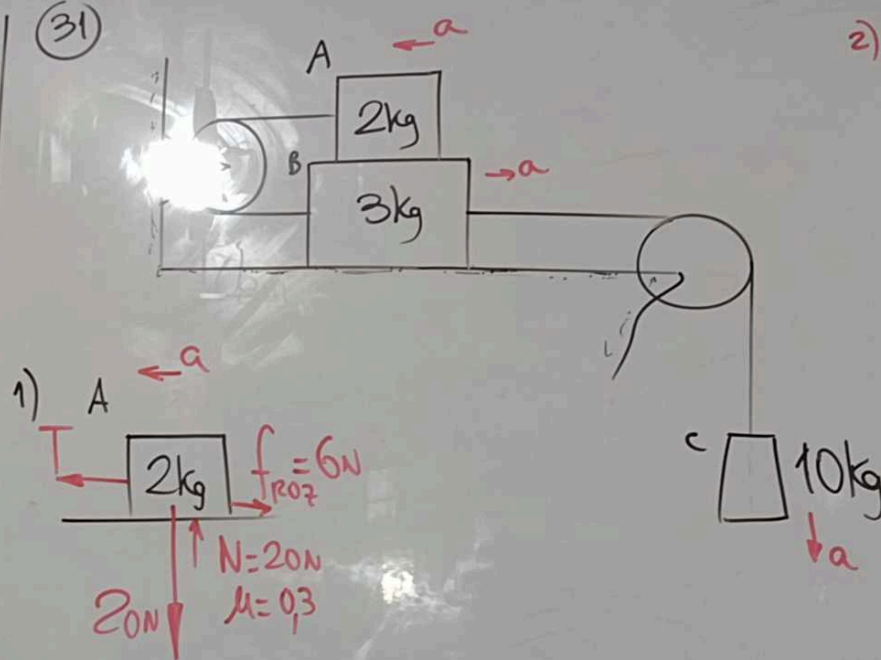 31
2)
← a
A
2kg
B
→ a
3kg
C
10kg
↓ a
1) A
← a
T
2kg
f ROZ = 6N
N = 20N
20N
μ = 0,3